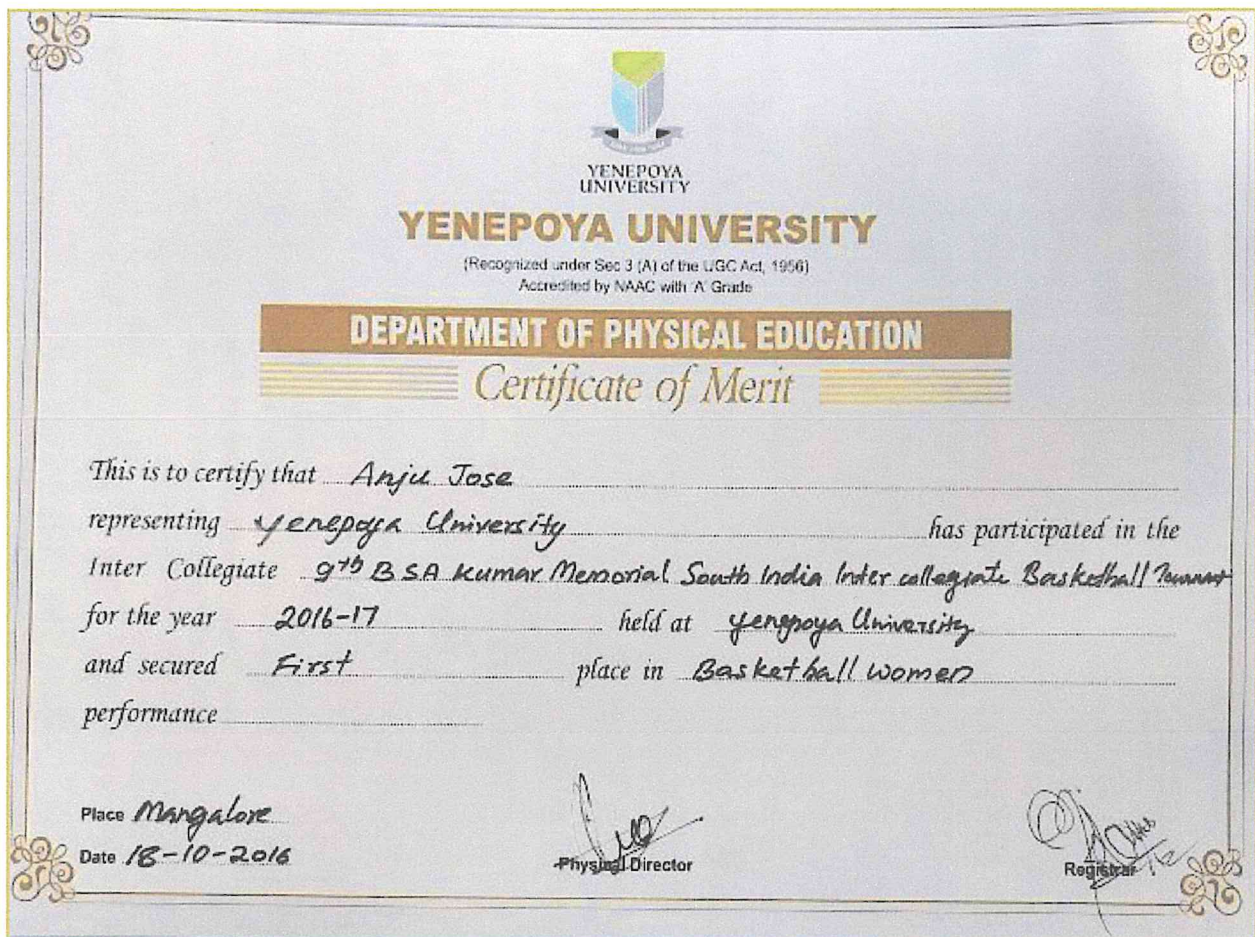 YENEPOYA
UNIVERSITY
YENEPOYA UNIVERSITY
(Recognized under Sec 3 (A) of the UGC Act, 1956)
Accredited by NAAC with 'A' Grade
DEPARTMENT OF PHYSICAL EDUCATION
Certificate of Merit
This is to certify that Anju Jose
representing Yenepoya University has participated in the
Inter Collegiate 9th BSA Kumar Memorial South India Inter collegiate Basketball
for the year 2016-17 held at Yenepoya University
and secured First place in Basketball women
performance
Place Mangalore
Date 18-10-2016
Physical Director
Registrar